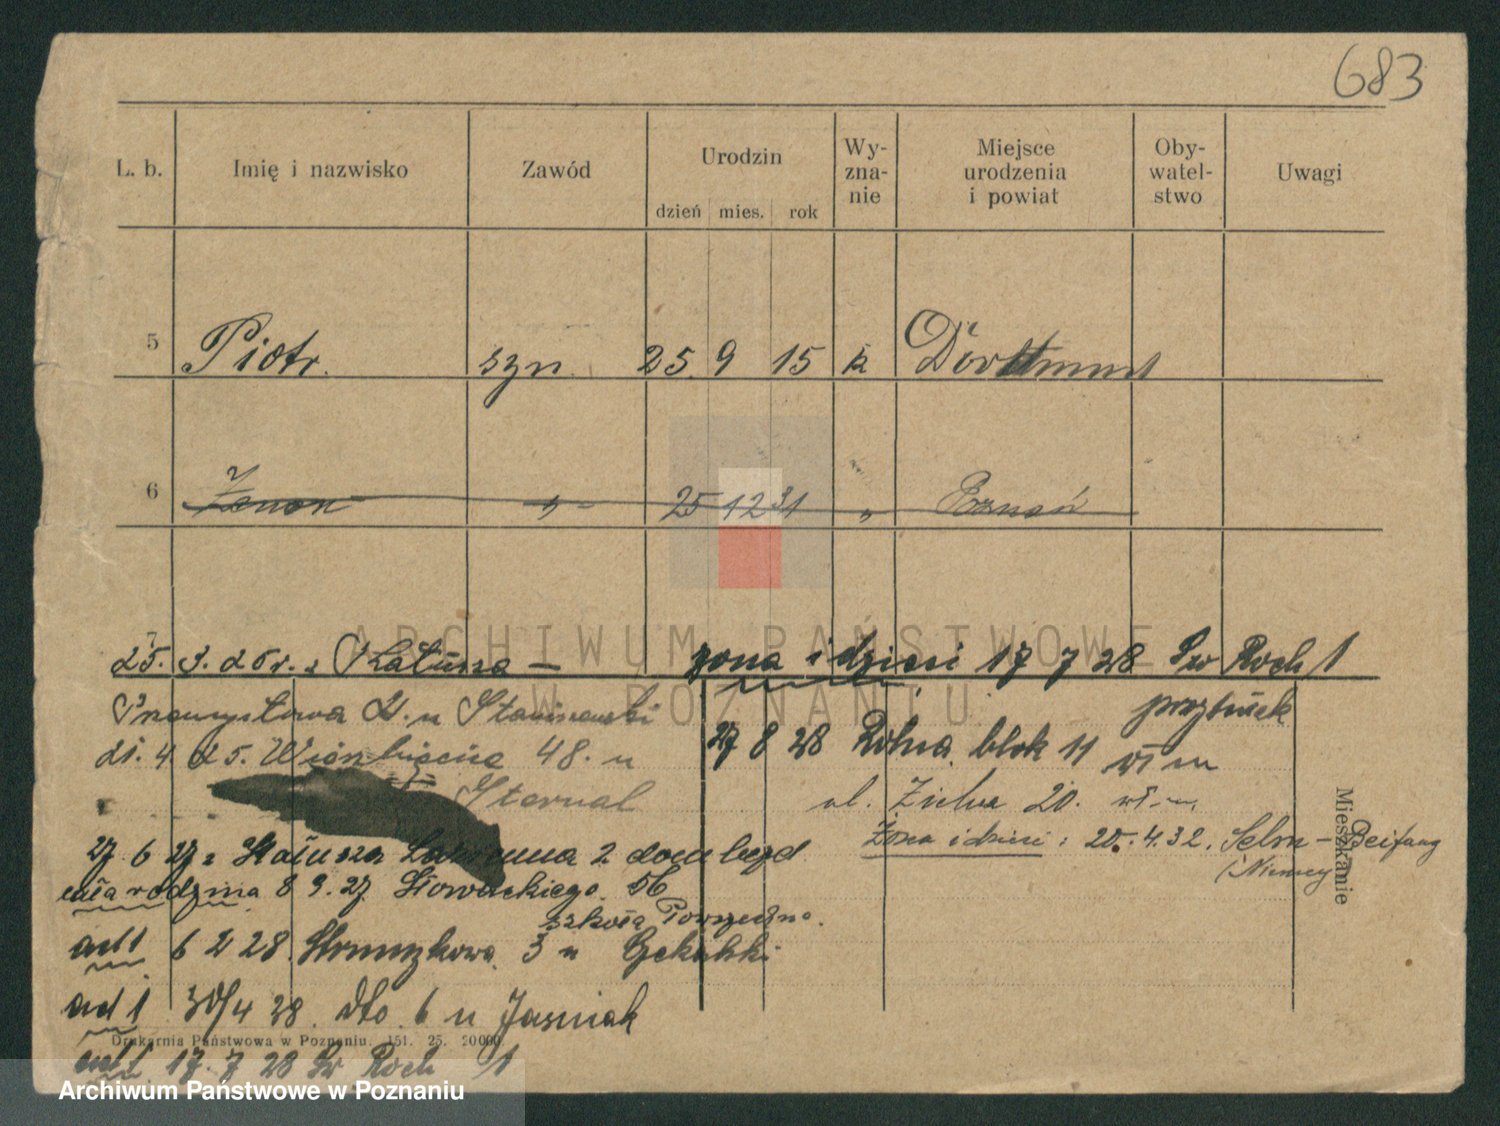 683
L. b. Imię i nazwisko Zawód Urodzin dzień mies. rok Wy-zna-nie Miejsce urodzenia i powiat Oby-watel-stwo Uwagi
5 Piotr. syn 25 9 15 k Dortmund
6 Zenon " 25 12 31 " Poznań
7
25. 3. 26 r. z żona i dzieci 17 7 28 Św Roch 1
przytułek
Przemysłowa u Staniszewski
27 8 28 Rolna blok 11
21. 4. 25. 48. u
Sternal
ul. Żielna 20.
27 6 27 2
Żona i dzieci : 20.4.32. Selm - Beifang
(Niemcy)
cała rodzina 8 9. 27. Słowackiego 56
szkoła Powszechna.
ad 1 6 2 28. 3 u
ad 1 30/4 28. dto. 6 u Jasniak
ad 1 17. 7 28 Św Roch 1
Mieszkanie
Drukarnia Państwowa w Poznaniu. 151. 25. 20000.
ARCHIWUM PAŃSTWOWE
W POZNANIU
Archiwum Państwowe w Poznaniu